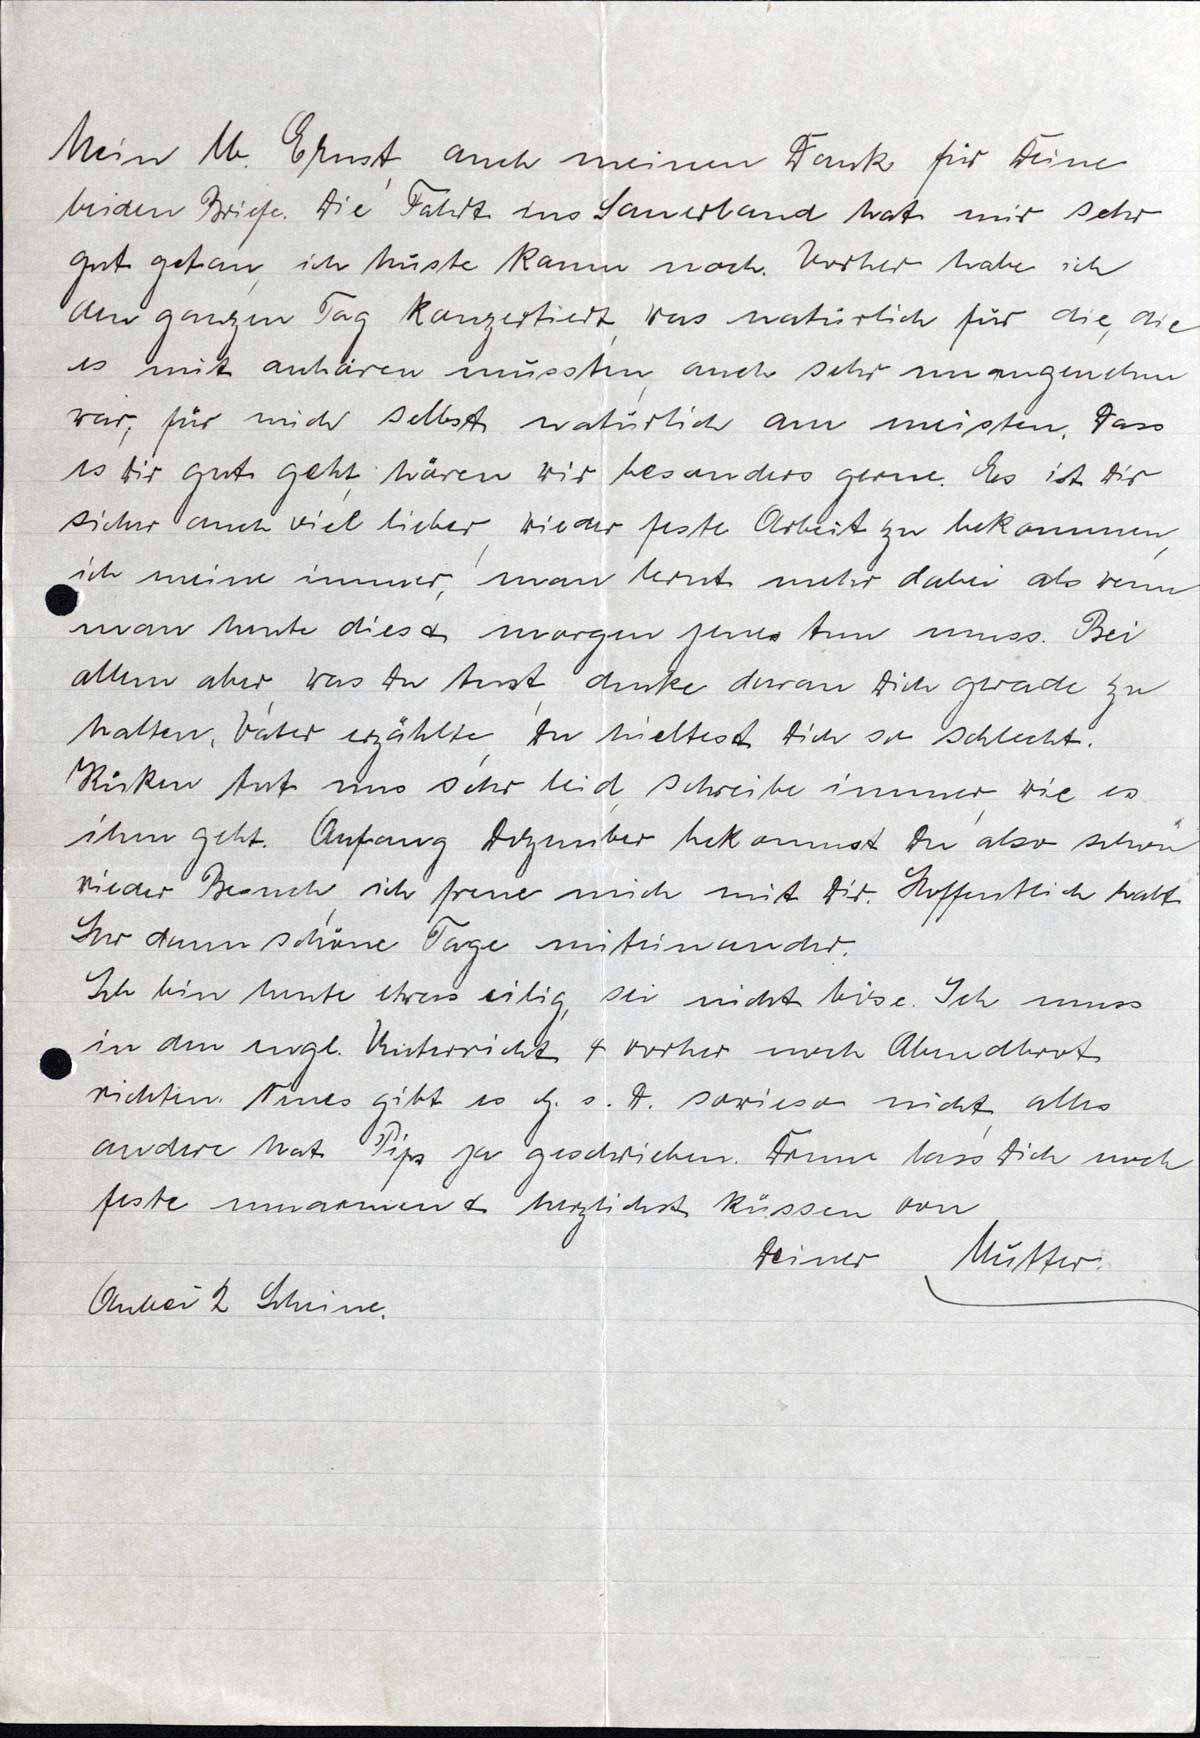 Mein lb. Ernst, auch meinen Dank für Deine
beiden Briefe. Die Fahrt ins Sauerland hat mir sehr
gut getan, ich huste kaum noch. Vorher habe ich
den ganzen Tag konzertiert, was natürlich für die, die
es mit anhören mussten, auch sehr unangenehm
war, für mich selbst natürlich am meisten. Dass
es Dir gut geht, hören wir besonders gerne. Es ist Dir
sicher auch viel lieber, wieder feste Arbeit zu bekommen,
ich meine immer, man lernt mehr dabei als wenn
man heute dies & morgen jenes tun muss. Bei
allem aber, was Du tust, denke daran Dich gerade zu
halten. Vater erzählte, Du hieltest Dich so schlecht.
tut uns sehr leid, schreibe immer, wie es
ihm geht. Anfang Dezember bekommst Du also schon
wieder Besuch, ich freue mich mit Dir. Hoffentlich habt
Ihr dann schöne Tage miteinander.
Ich bin heute etwas eilig, sei nicht böse. Ich muss
in den engl. Unterricht & vorher noch Abendbrot
richten. Neues gibt es G. s. D. sowieso nicht, alles
andere hat Pips ja geschrieben. Drum lass Dich noch
feste umarmen & herzlichst küssen von
Deiner Mutter.
Anbei 2 Scheine.